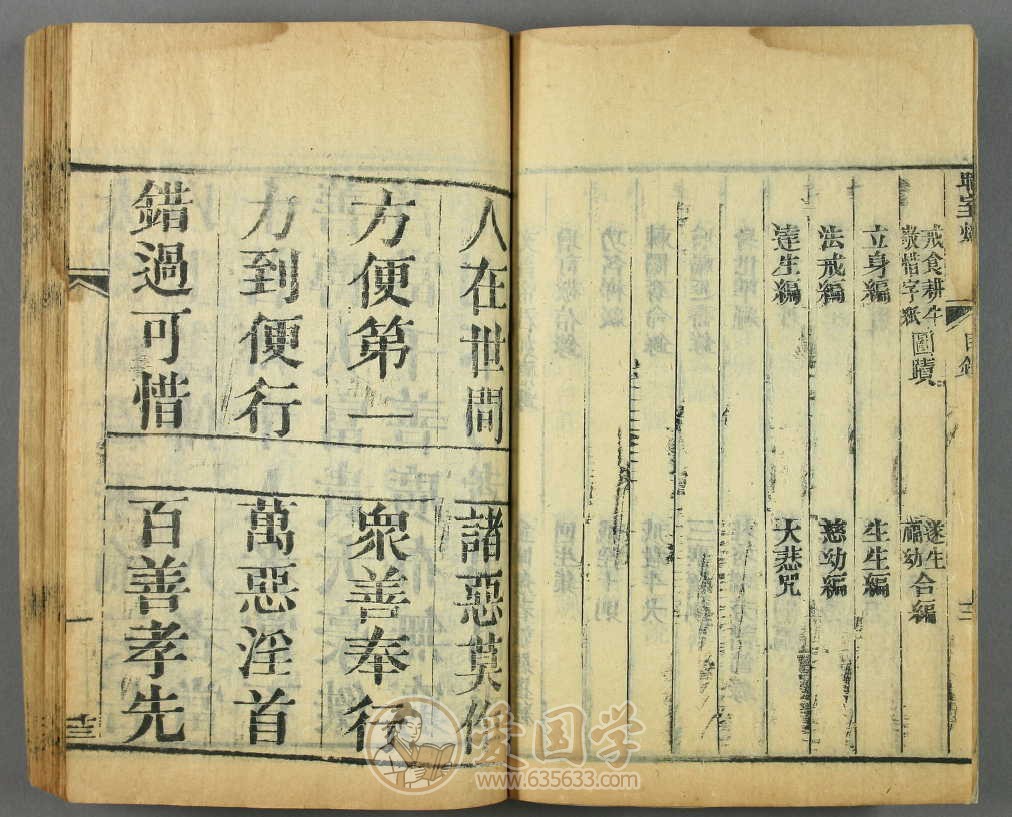 戒食耕牛
敬惜字紙
圖蹟
遂生
福幼
合編
立身編
生生編
法戒編
慈幼編
達生編
大悲咒
目錄
人在世間
方便第一
力到便行
錯過可惜
諸惡莫作
衆善奉行
萬惡淫首
百善孝先
爱国学
www.635633.com